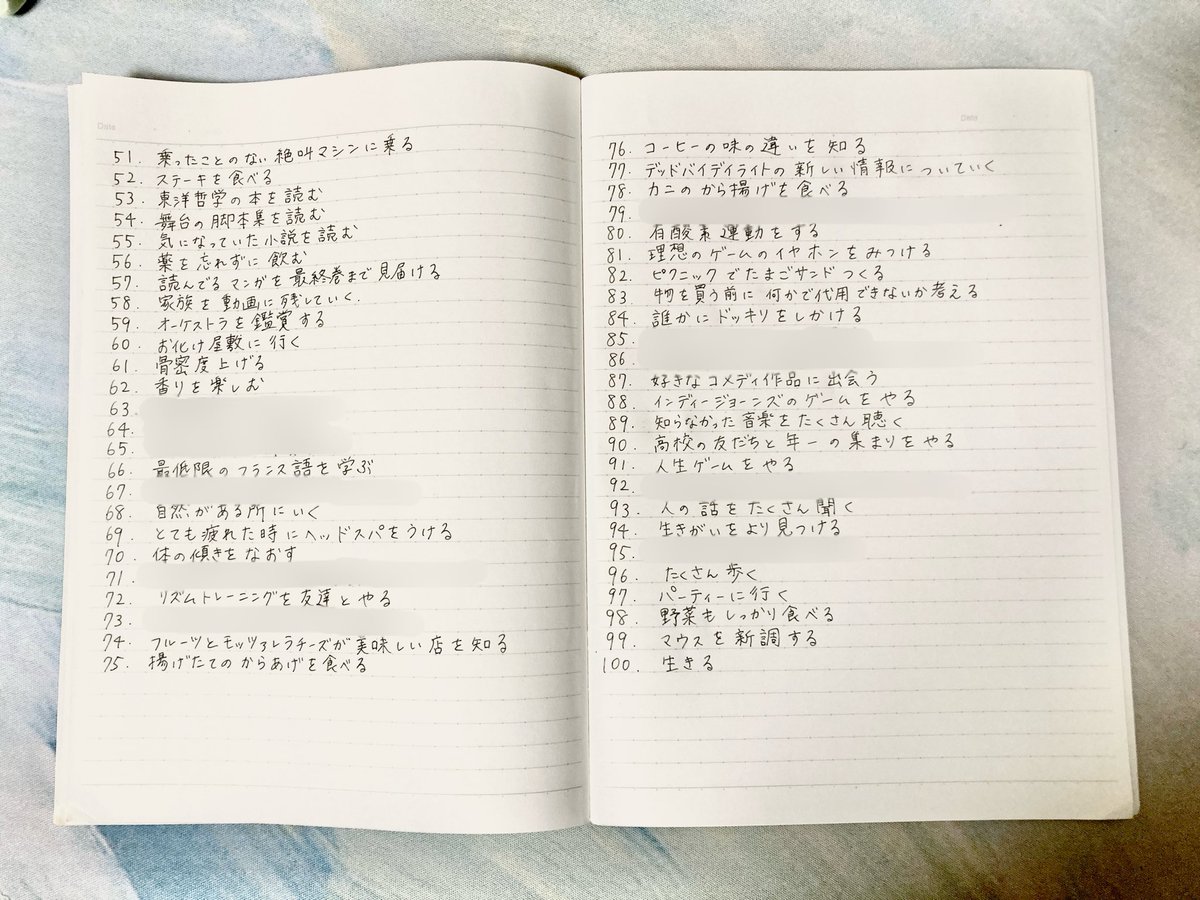 Date
51. 乗ったことのない絶叫マシンに乗る
52. ステーキを食べる
53. 東洋哲学の本を読む
54. 舞台の脚本集を読む
55. 気になっていた小説を読む
56. 薬を忘れずに飲む
57. 読んでるマンガを最終巻まで見届ける
58. 家族を動画に残していく.
59. オーケストラを鑑賞する
60. お化け屋敷に行く
61. 骨密度上げる
62. 香りを楽しむ
63.
64.
65.
66. 最低限のフランス語を学ぶ
67.
68. 自然がある所にいく
69. とても疲れた時にヘッドスパをうける
70. 体の傾きをなおす
71.
72. リズムトレーニングを友達とやる
73.
74. フルーツとモッツァレラチーズが美味しい店を知る
75. 揚げたてのからあげを食べる
Date
76. コーヒーの味の違いを知る
77. デッドバイデイライトの新しい情報についていく
78. カニのから揚げを食べる
79.
80. 有酸素運動をする
81. 理想のゲームのイヤホンをみつける
82. ピクニックでたまごサンドつくる
83. 物を買う前に何かで代用できないか考える
84. 誰かにドッキリをしかける
85.
86.
87. 好きなコメディ作品に出会う
88. インディージョーンズのゲームをやる
89. 知らなかった音楽をたくさん聴く
90. 高校の友だちと年一の集まりをやる
91. 人生ゲームをやる
92.
93. 人の話をたくさん聞く
94. 生きがいをより見つける
95.
96. たくさん歩く
97. パーティーに行く
98. 野菜もしっかり食べる
99. マウスを新調する
100. 生きる